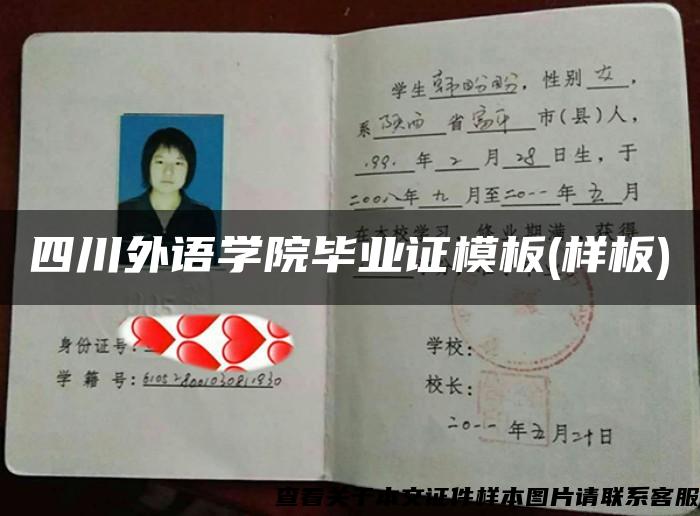 学生韩盼盼,性别女,
系陕西省富平市(县)人,
1991年2月28日生,于
二00八年九月至二0一一年五月
在本校学习,修业期满,获得
四川外语学院毕业证模板(样板)
身份证号:
学籍号:
学校:
校长:
二0一一年五月二十日
查看关于本文证件样本图片请联系客服